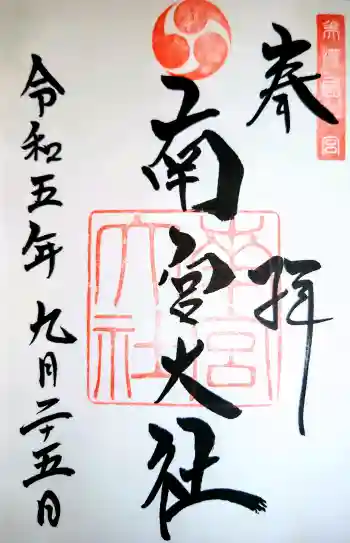 奉拝
美濃國一宮
南宮大社
南宮大社
令和五年九月二十五日